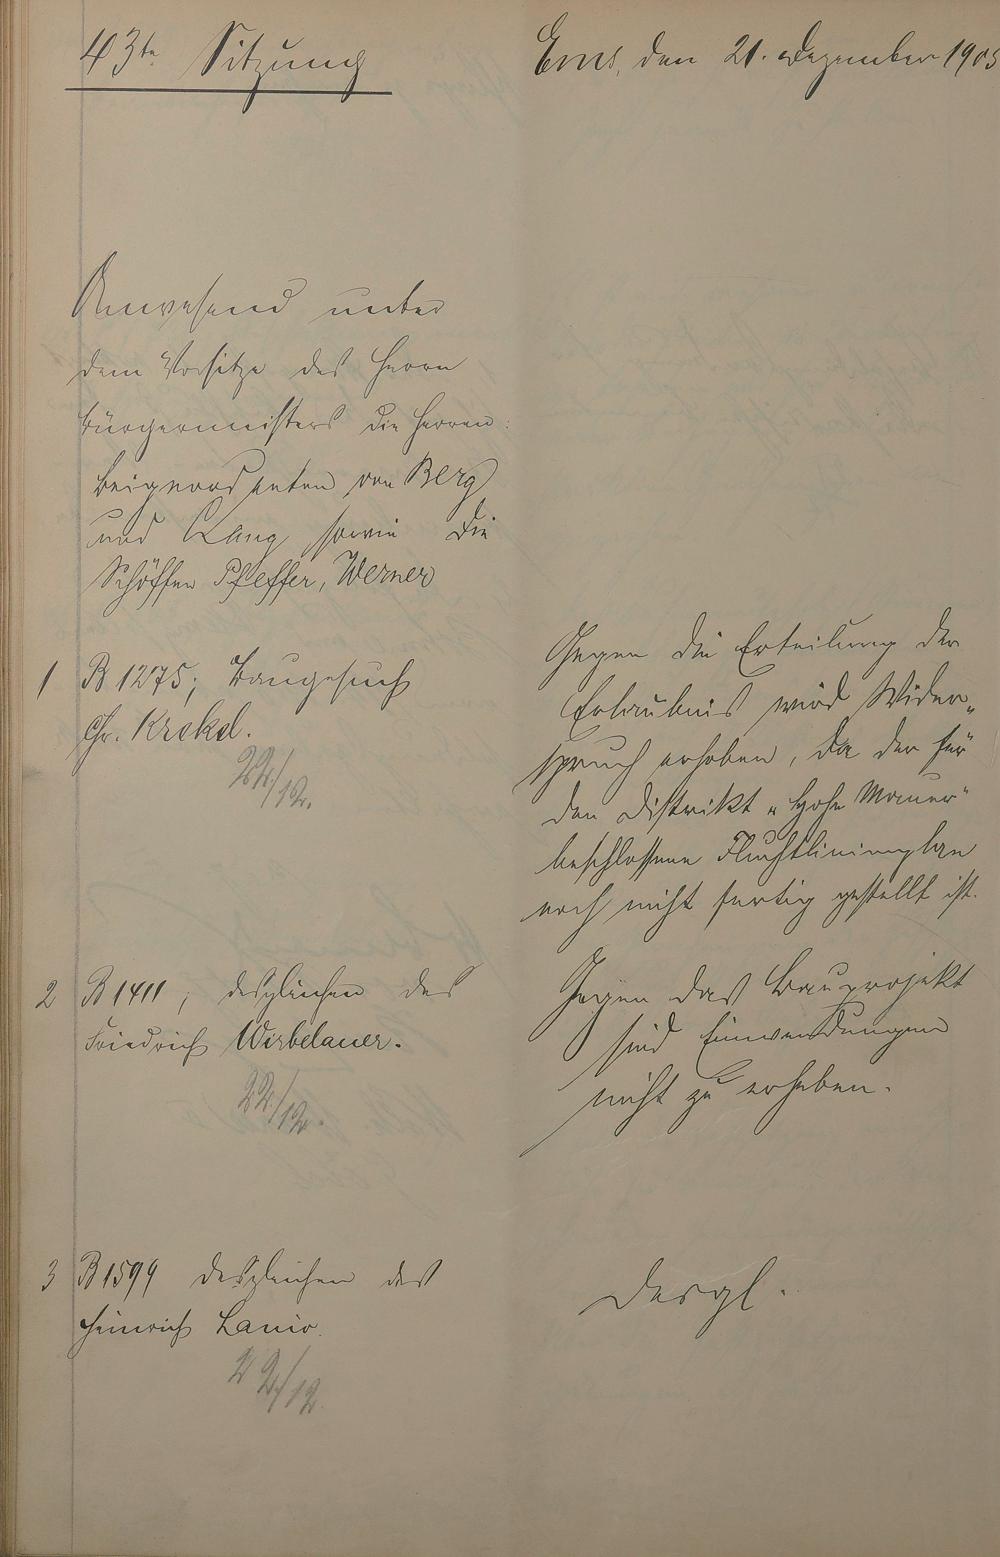 43te Sitzung
Ems, den 21. Dezember 1905
Anwesend unter
dem Vorsitze des Herrn
Bürgermeisters die Herren:
Beigeordneten von Berg
und Lang sowie die
Schöffen Pfeffer, Werner
1 B 1275; Baugesuch
Chr. Krekel.
22/12.
Gegen die Erteilung der
Erlaubnis wird Wider„
spruch erhoben, da der für
den Distrikt „Hohe Mauer“
beschlossene Fluchtlinienplan
noch nicht fertig gestellt ist.
2 B 1411; desgleichen des
Friedrich Wirbelauer.
22/12.
Gegen das Bauprojekt
sind Einwendungen
nicht zu erheben.
3 B 1599 desgleichen des
Heinrich Lanio.
22/12.
Desgl.